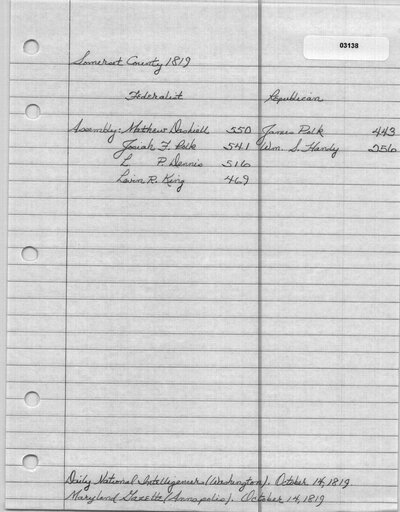 03138
Somerset County 1819
Federalist Republican
Assembly: Mathew Dashiell 550 James Polk 443
Josiah F. Polk 541 Wm. S. Handy 256
L P. Dennis 516
Levin R. King 469
Daily National Intelligencer (Washington). October 14, 1819.
Maryland Gazette (Annapolis). October 14, 1819